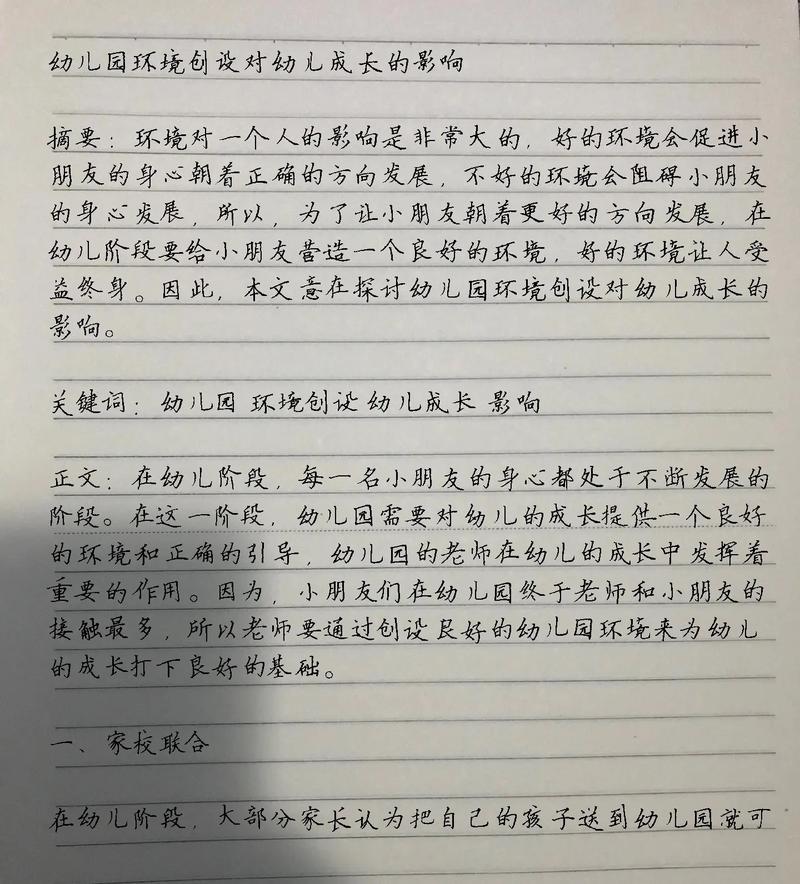 幼儿园环境创设对幼儿成长的影响
摘要：环境对一个人的影响是非常大的，好的环境会促进小
朋友的身心朝着正确的方向发展，不好的环境会阻碍小朋友
的身心发展，所以，为了让小朋友朝着更好的方向发展，在
幼儿阶段要给小朋友营造一个良好的环境，好的环境让人受
益终身。因此，本文意在探讨幼儿园环境创设对幼儿成长的
影响。
关键词：幼儿园 环境创设 幼儿成长 影响
正文：在幼儿阶段，每一名小朋友的身心都处于不断发展的
阶段。在这一阶段，幼儿园需要对幼儿的成长提供一个良好
的环境和正确的引导，幼儿园的老师在幼儿的成长中发挥着
重要的作用。因为，小朋友们在幼儿园终于老师和小朋友的
接触最多，所以老师要通过创设良好的幼儿园环境来为幼儿
的成长打下良好的基础。
一、家校联合
在幼儿阶段，大部分家长认为把自己的孩子送到幼儿园就可